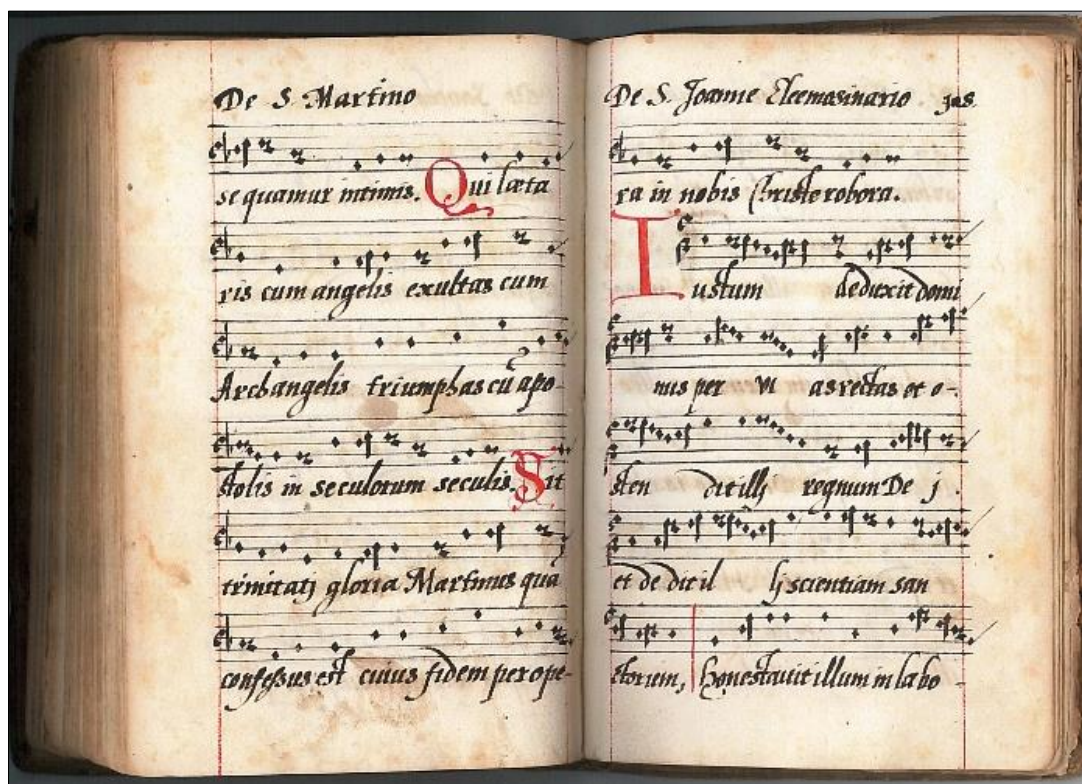 De S. Martino
sequamur intimis. Qui læta
ris cum angelis exultas cum
Archangelis triumphas cũ apo-
stolis in seculorum seculis. Sit
trinitatj gloria Martinus quẽ
confessus est cuius fidem per ope-
De S. Joanne Eleemosinario
ra in nobis Christe robora.
Iustum deduxit domi
nus per vi as rectas et o-
sten dit illj regnum Dej.
et dedit il lj scientiam san
ctorum, honestavit illum in labo-